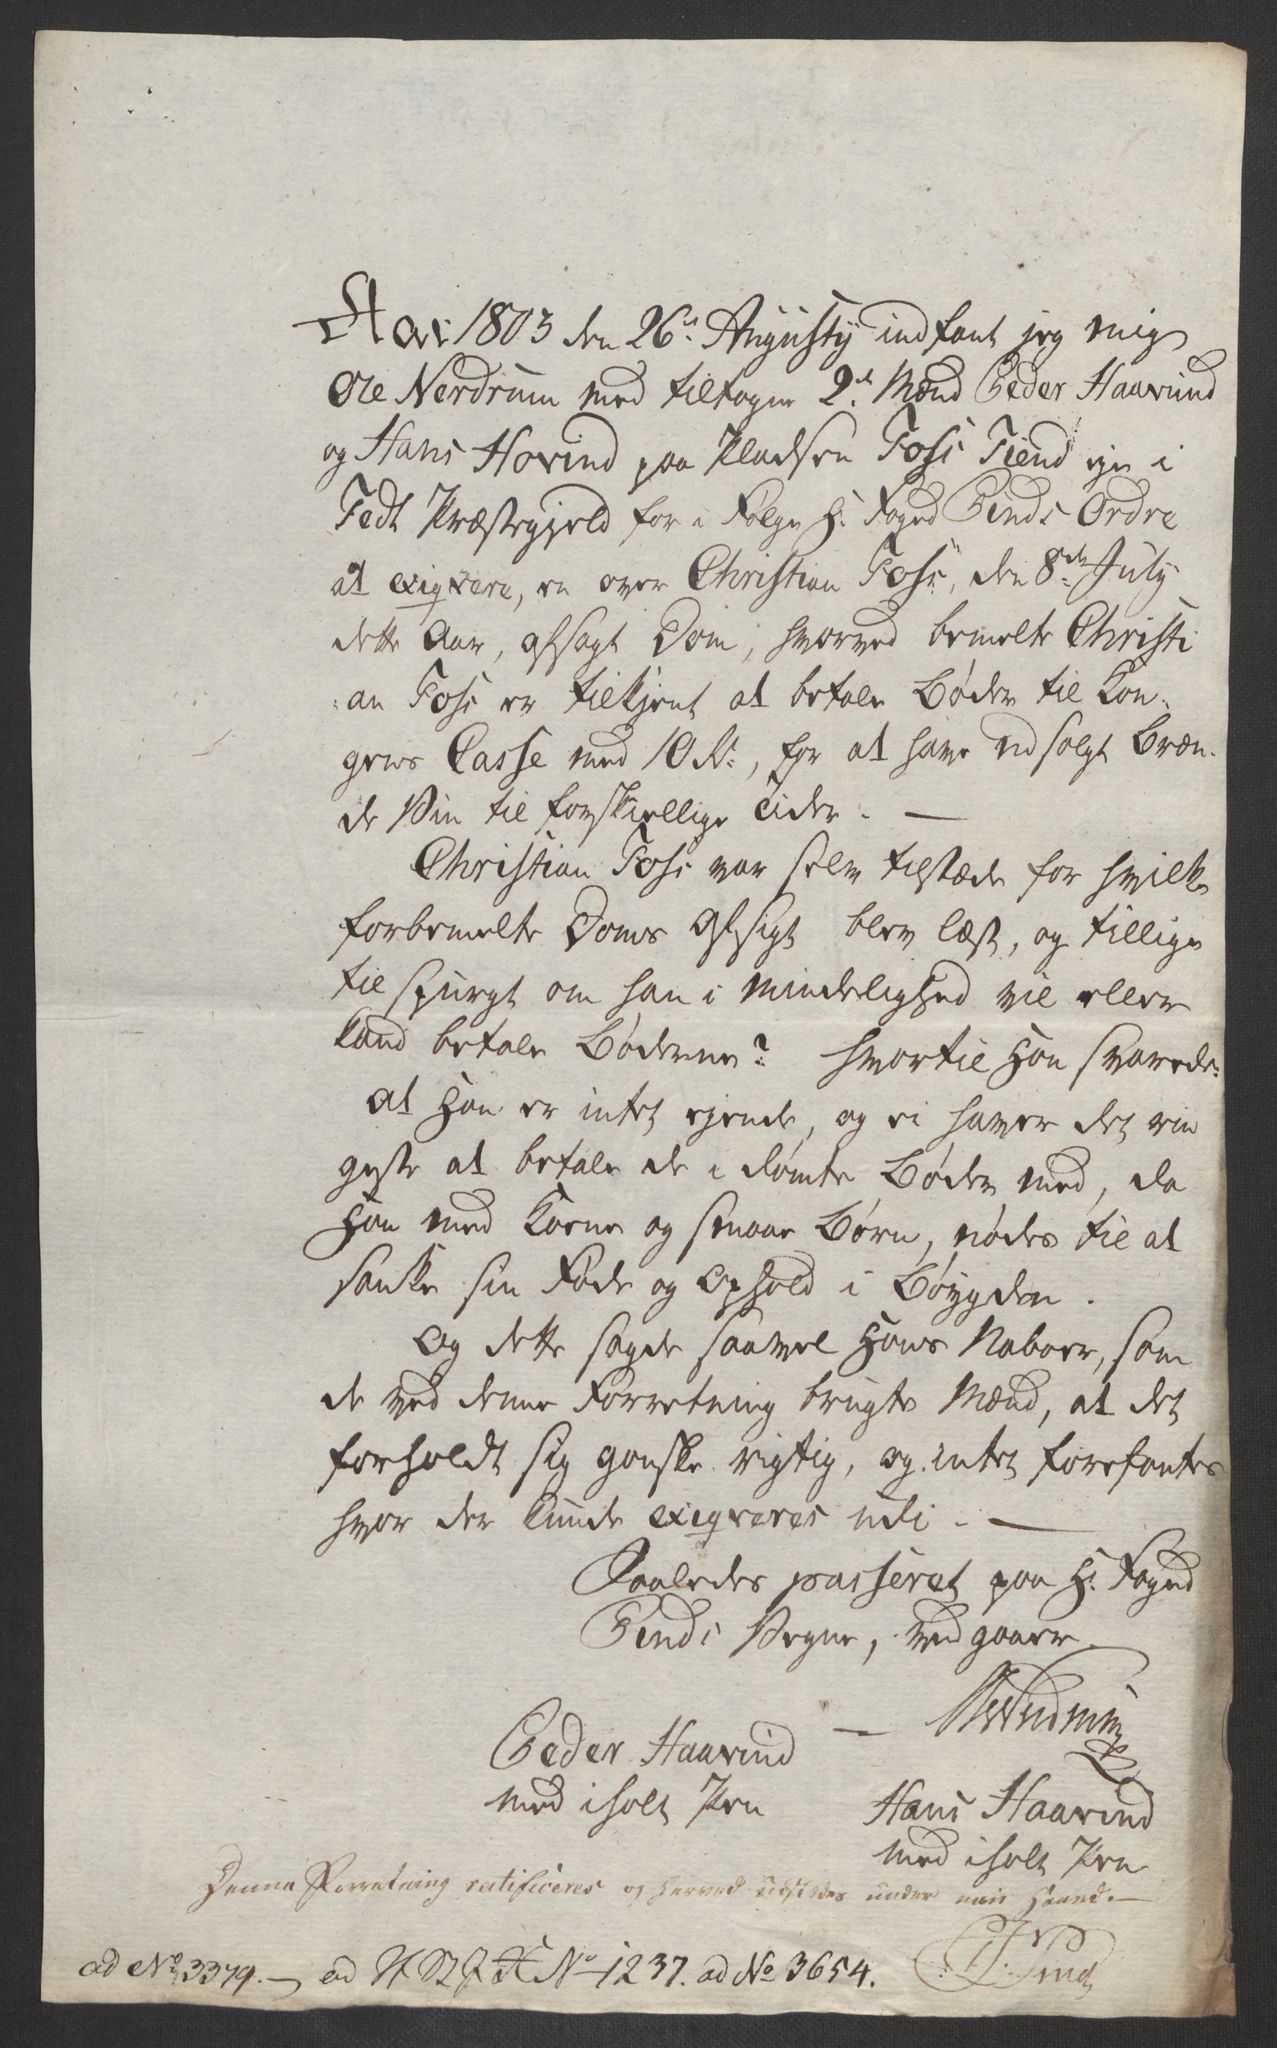 Aar 1803 den 26d. Augusty indfant jeg mig
Ole Nerdrum med tiltagne 2d. Mænd Peder Haarind
og Hans Hovind paa Pladsen Foss Fiend eje i
Fedt Præstegjeld for i Følge H: Foged Pinds Ordre
at exiqvere, en over Christian Foss, den 8de July
dette Aar, afsagt Dom, hvorved bemelte Christi
:an Foss er tilkjent at betale Bøder til Kon:
gens Casse med 10 Rd:, for at have udsolgt Bræn:
de Viin til forskiellige Tider. —
Christian Foss var selv tilstæde for hvilk
forbemelte Doms Afsigt blev læst, og tillige
til spurgt om han i Mindelighed vil eller
kand betale Bøderne? hvortil Han svarede:
at Han er intet ejende, og ei haver det rin
geste at betale de i dømte Bøder med, da
Han med Kone og smaae Børn, nødes til at
sanke sin Føde og Ophold i Bøygden.
Og dette sagde saavel Hans Naboer, som
de ved denne Forretning brugte Mænd, at det
forholdt sig ganske rigtig, og intet forefantes
hvor der kunde exiqveres udi. —
Saaledes passeret paa H: Foged
Pinds Vegne, ved gaaer
— Nerdrum
Peder Haarind
med i holt Pen
Hans Haarind
med i holt Pen
Denne Forretning ratificeres og herved udstedes under min Haand. —
ad No 3379. — ad No 1237. ad No 3654. Pind